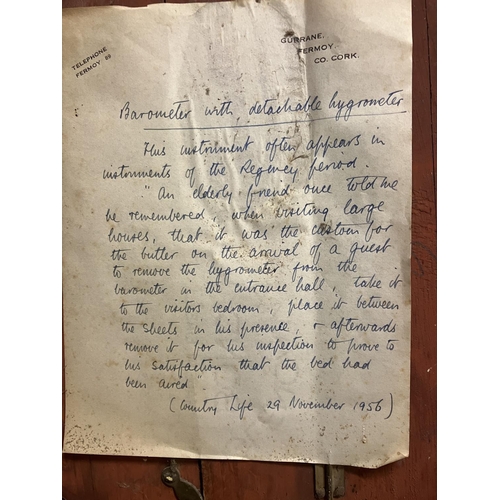 TELEPHONE
FERMOY 89
GURRANE,
FERMOY
CO. CORK.
Barometer with detachable hygrometer
This instrument often appears in
instruments of the Regency period.
"An elderly friend once told me
he remembered, when visiting large
houses, that it was the custom for
the butler on the arrival of a guest
to remove the hygrometer from the
barometer in the entrance hall, take it
to the visitors bedroom, place it between
the sheets in his presence, & afterwards
remove it for his inspection to prove to
his satisfaction that the bed had
been aired"
(Country Life 29 November 1956)